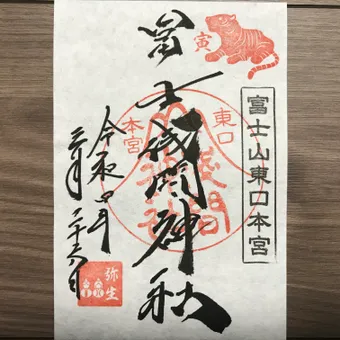 寅
冨士山東口本宮
冨士浅間神社
東口
本宮
浅間
令和四年
三月二十六日
弥生